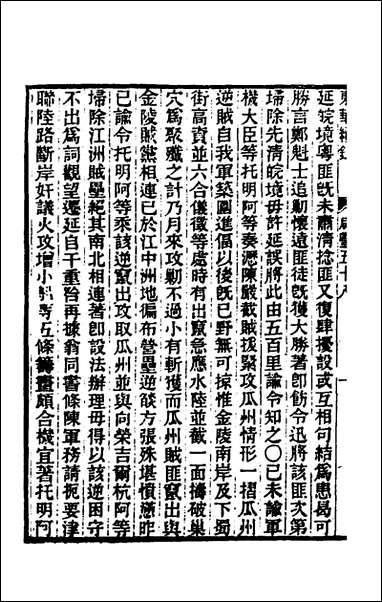 東華續錄 咸豐五十八
延皖境粵匪旣未肅清捻匪又復肆擾設或互相句結爲患曷可
勝言鄭魁士追勦懷遠匪徒旣獲大勝著卽飭令迅將該匪次第
埽除先清皖境毋許延誤將此由五百里諭令知之〇己未諭軍
機大臣等托明阿等奏瀝陳嚴截賊援緊攻瓜州情形一摺瓜州
逆賊自我軍築圍進偪以後旣已野無可掠惟金陵南岸及下蜀
街高資並六合儀徵等處時有出竄急應水陸並截一面擣破巢
穴爲聚殲之計乃月來攻勦不過小有斬獲而瓜州賊匪竄出與
金陵賊黨相連已於江中洲地徧布營壘逆燄方張殊堪憤懣昨
已諭令托明阿等乘該逆竄出攻取瓜州並與向榮吉爾杭阿等
埽除江洲賊壘絕其南北相連著卽設法辦理毋得以該逆困守
不出爲詞觀望遷延自干重咎再據翁同書條陳軍務請扼要津
聯陸路斷岸奸議火攻增小船等五條籌畫頗合機宜著托明阿